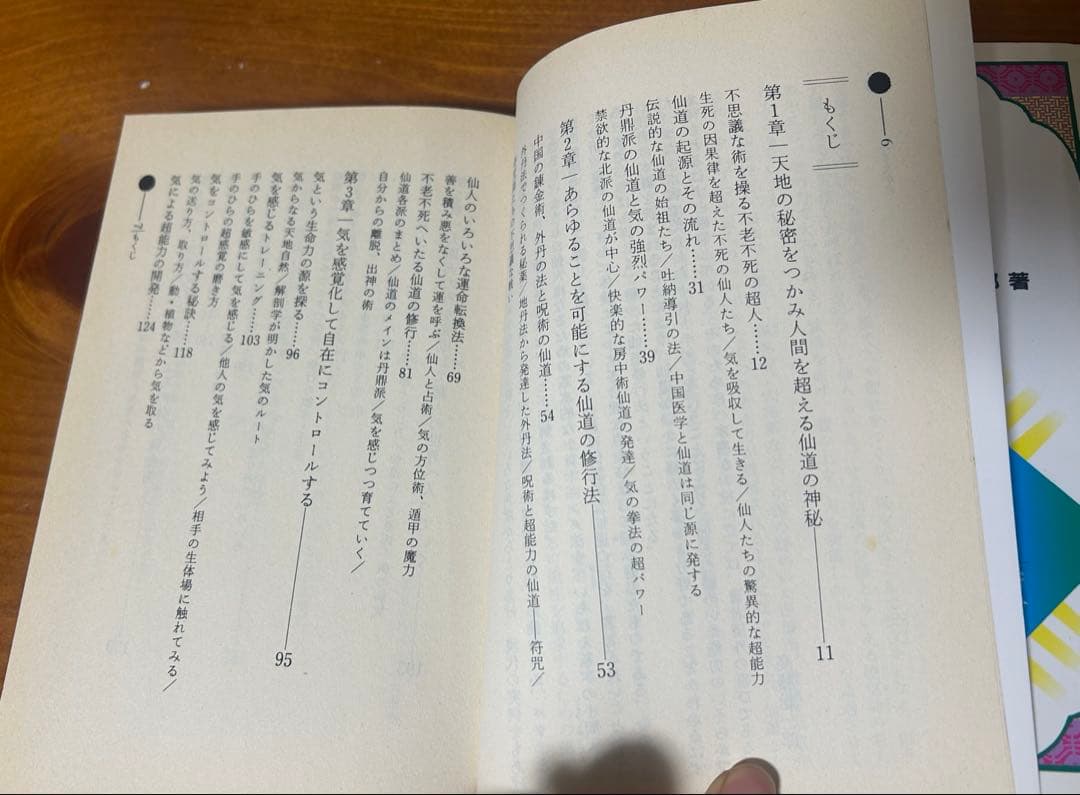 6
もくじ
第1章―天地の秘密をつかみ人間を超える仙道の神秘――11
不思議な術を操る不老不死の超人……12
生死の因果律を超えた不死の仙人たち／気を吸収して生きる／仙人たちの驚異的な超能力
仙道の起源とその流れ……31
伝説的な仙道の始祖たち／吐納導引の法／中国医学と仙道は同じ源に発する
丹鼎派の仙道と気の強烈パワー……39
禁欲的な北派の仙道が中心／快楽的な房中術仙道の発達／気の拳法の超パワー
第2章―あらゆることを可能にする仙道の修行法――53
中国の錬金術、外丹の法と呪術の仙道……54
外丹法でつくられる秘薬／地丹法から発達した外丹法／呪術と超能力の仙道――符咒／
仙人のいろいろな運命転換法……69
善を積み悪をなくして運を呼ぶ／仙人と占術／気の方位術、遁甲の魔力
不老不死へいたる仙道の修行……81
仙道各派のまとめ／仙道のメインは丹鼎派／気を感じつつ育てていく／
自分からの離脱、出神の術
第3章―気を感覚化して自在にコントロールする――95
気という生命力の源を探る……96
気からなる天地自然／解剖学が明かした気のルート
気を感じるトレーニング……103
手のひらを敏感にして気を感じる／他人の気を感じてみよう／相手の生体場に触れてみる／
手のひらの超感覚の磨き方
気をコントロールする秘訣……118
気の送り方、取り方／動・植物などから気を取る
気による超能力の開発……124
7―もくじ
著